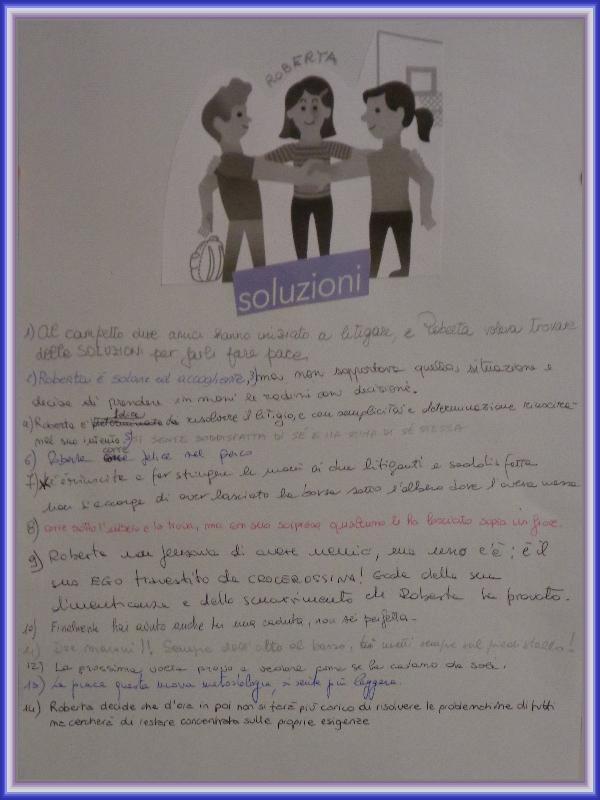 ROBERTA
soluzioni
1) Al campetto due amici hanno iniziato a litigare, e Roberta voleva trovare
delle SOLUZIONI per farli fare pace.
2) Roberta è solare ed accogliente, 3) ma non sopportava quella situazione e
decise di prendere in mano le redini con decisione.
4) Roberta è felice di risolvere il litigio, e con semplicità e determinazione
nel suo intento. 5) SI SENTE SODDISFATTA DI SÉ E HA STIMA DI SÉ STESSA
6) Roberta corre felice nel parco
7) è riuscita a far stringere le mani ai due litiganti e soddisfatta
non s'accorge di aver lasciato la borsa sotto l'albero dove l'aveva messa
8) corre sotto l'albero e la trova, ma con sua sorpresa qualcuno le ha lasciato sopra un fiore.
9) Roberta non pensava di avere nemici, ma uno c'è; è il
suo EGO travestito da CROCEROSSINA! Gode della sua
dimenticanza e dello smarrimento che Roberta ha provato.
10) Finalmente hai avuto anche tu una caduta, non sei perfetta.
11) Due mani!! Sempre dall'alto al basso, ti metti sempre sul piedistallo!
12) La prossima volta provo a vedere come se la cavano da soli.
13) Le piace questa nuova metodologia, si sente più leggera.
14) Roberta decide che d'ora in poi non si farà più carico di risolvere le problematiche di tutti
ma cercherà di restare concentrata sulle proprie esigenze